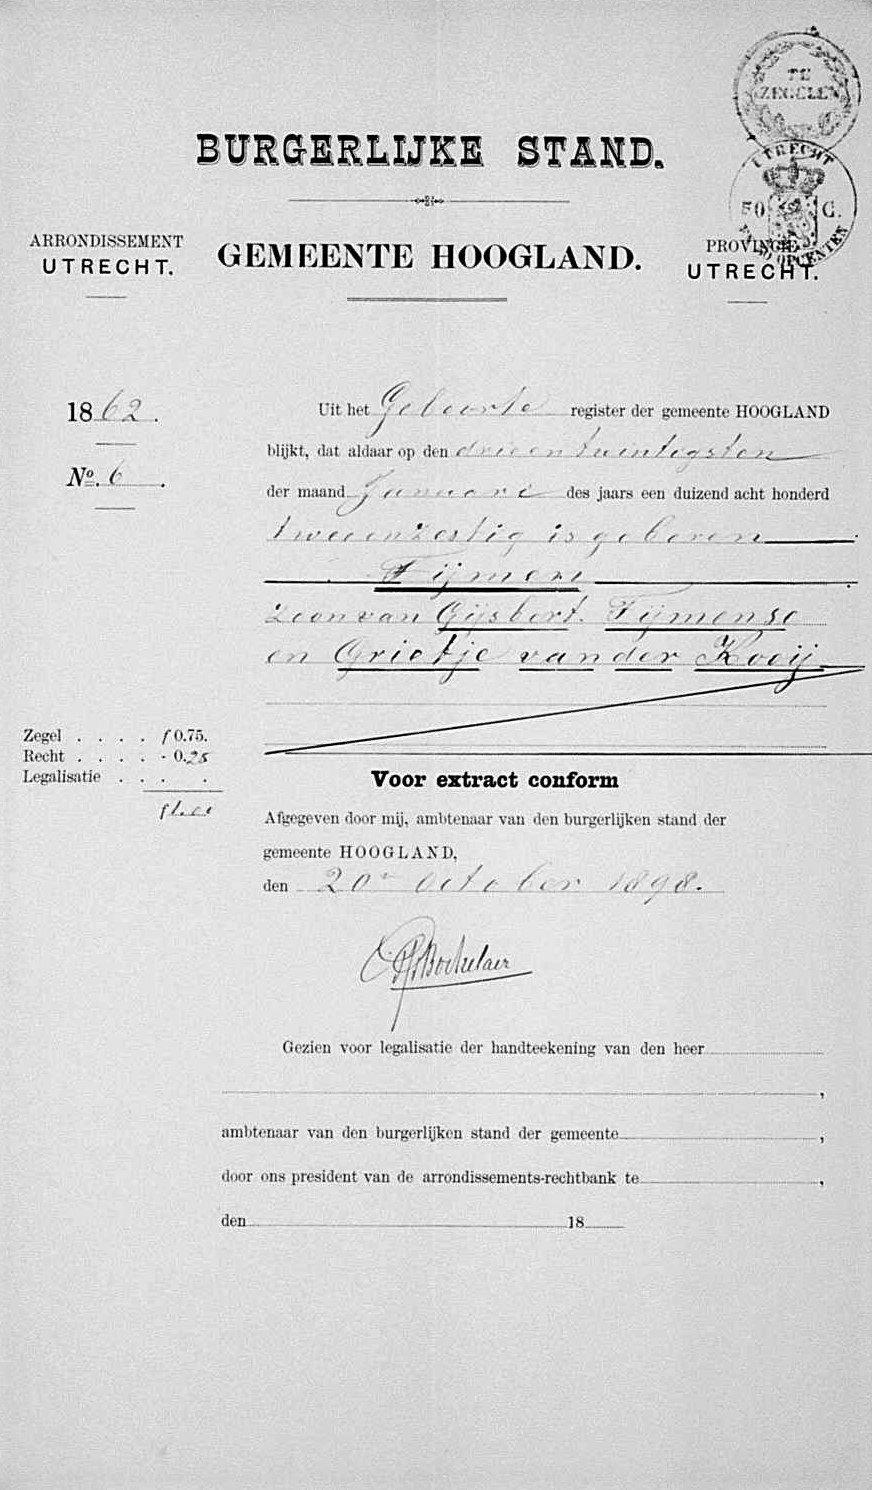 TE
ZEGELEN
UTRECHT
50 C.
OPCENTEN
BURGERLIJKE STAND.
ARRONDISSEMENT
UTRECHT.
GEMEENTE HOOGLAND.
PROVINCIE
UTRECHT.
1862.
No. 6.
Uit het Geboorte register der gemeente HOOGLAND
blijkt, dat aldaar op den drieentwintigsten
der maand Januari des jaars een duizend acht honderd
tweeenzestig is geboren
Tijmen
zoon van Gijsbert Tijmense
en Grietje van der Kooij
Zegel . . . . f 0.75.
Recht . . . . - 0.25
Legalisatie . . . .
f1.00
Voor extract conform
Afgegeven door mij, ambtenaar van den burgerlijken stand der
gemeente HOOGLAND,
den 20n October 1898.
Gezien voor legalisatie der handteekening van den heer
,
ambtenaar van den burgerlijken stand der gemeente ,
door ons president van de arrondissements-rechtbank te ,
den 18